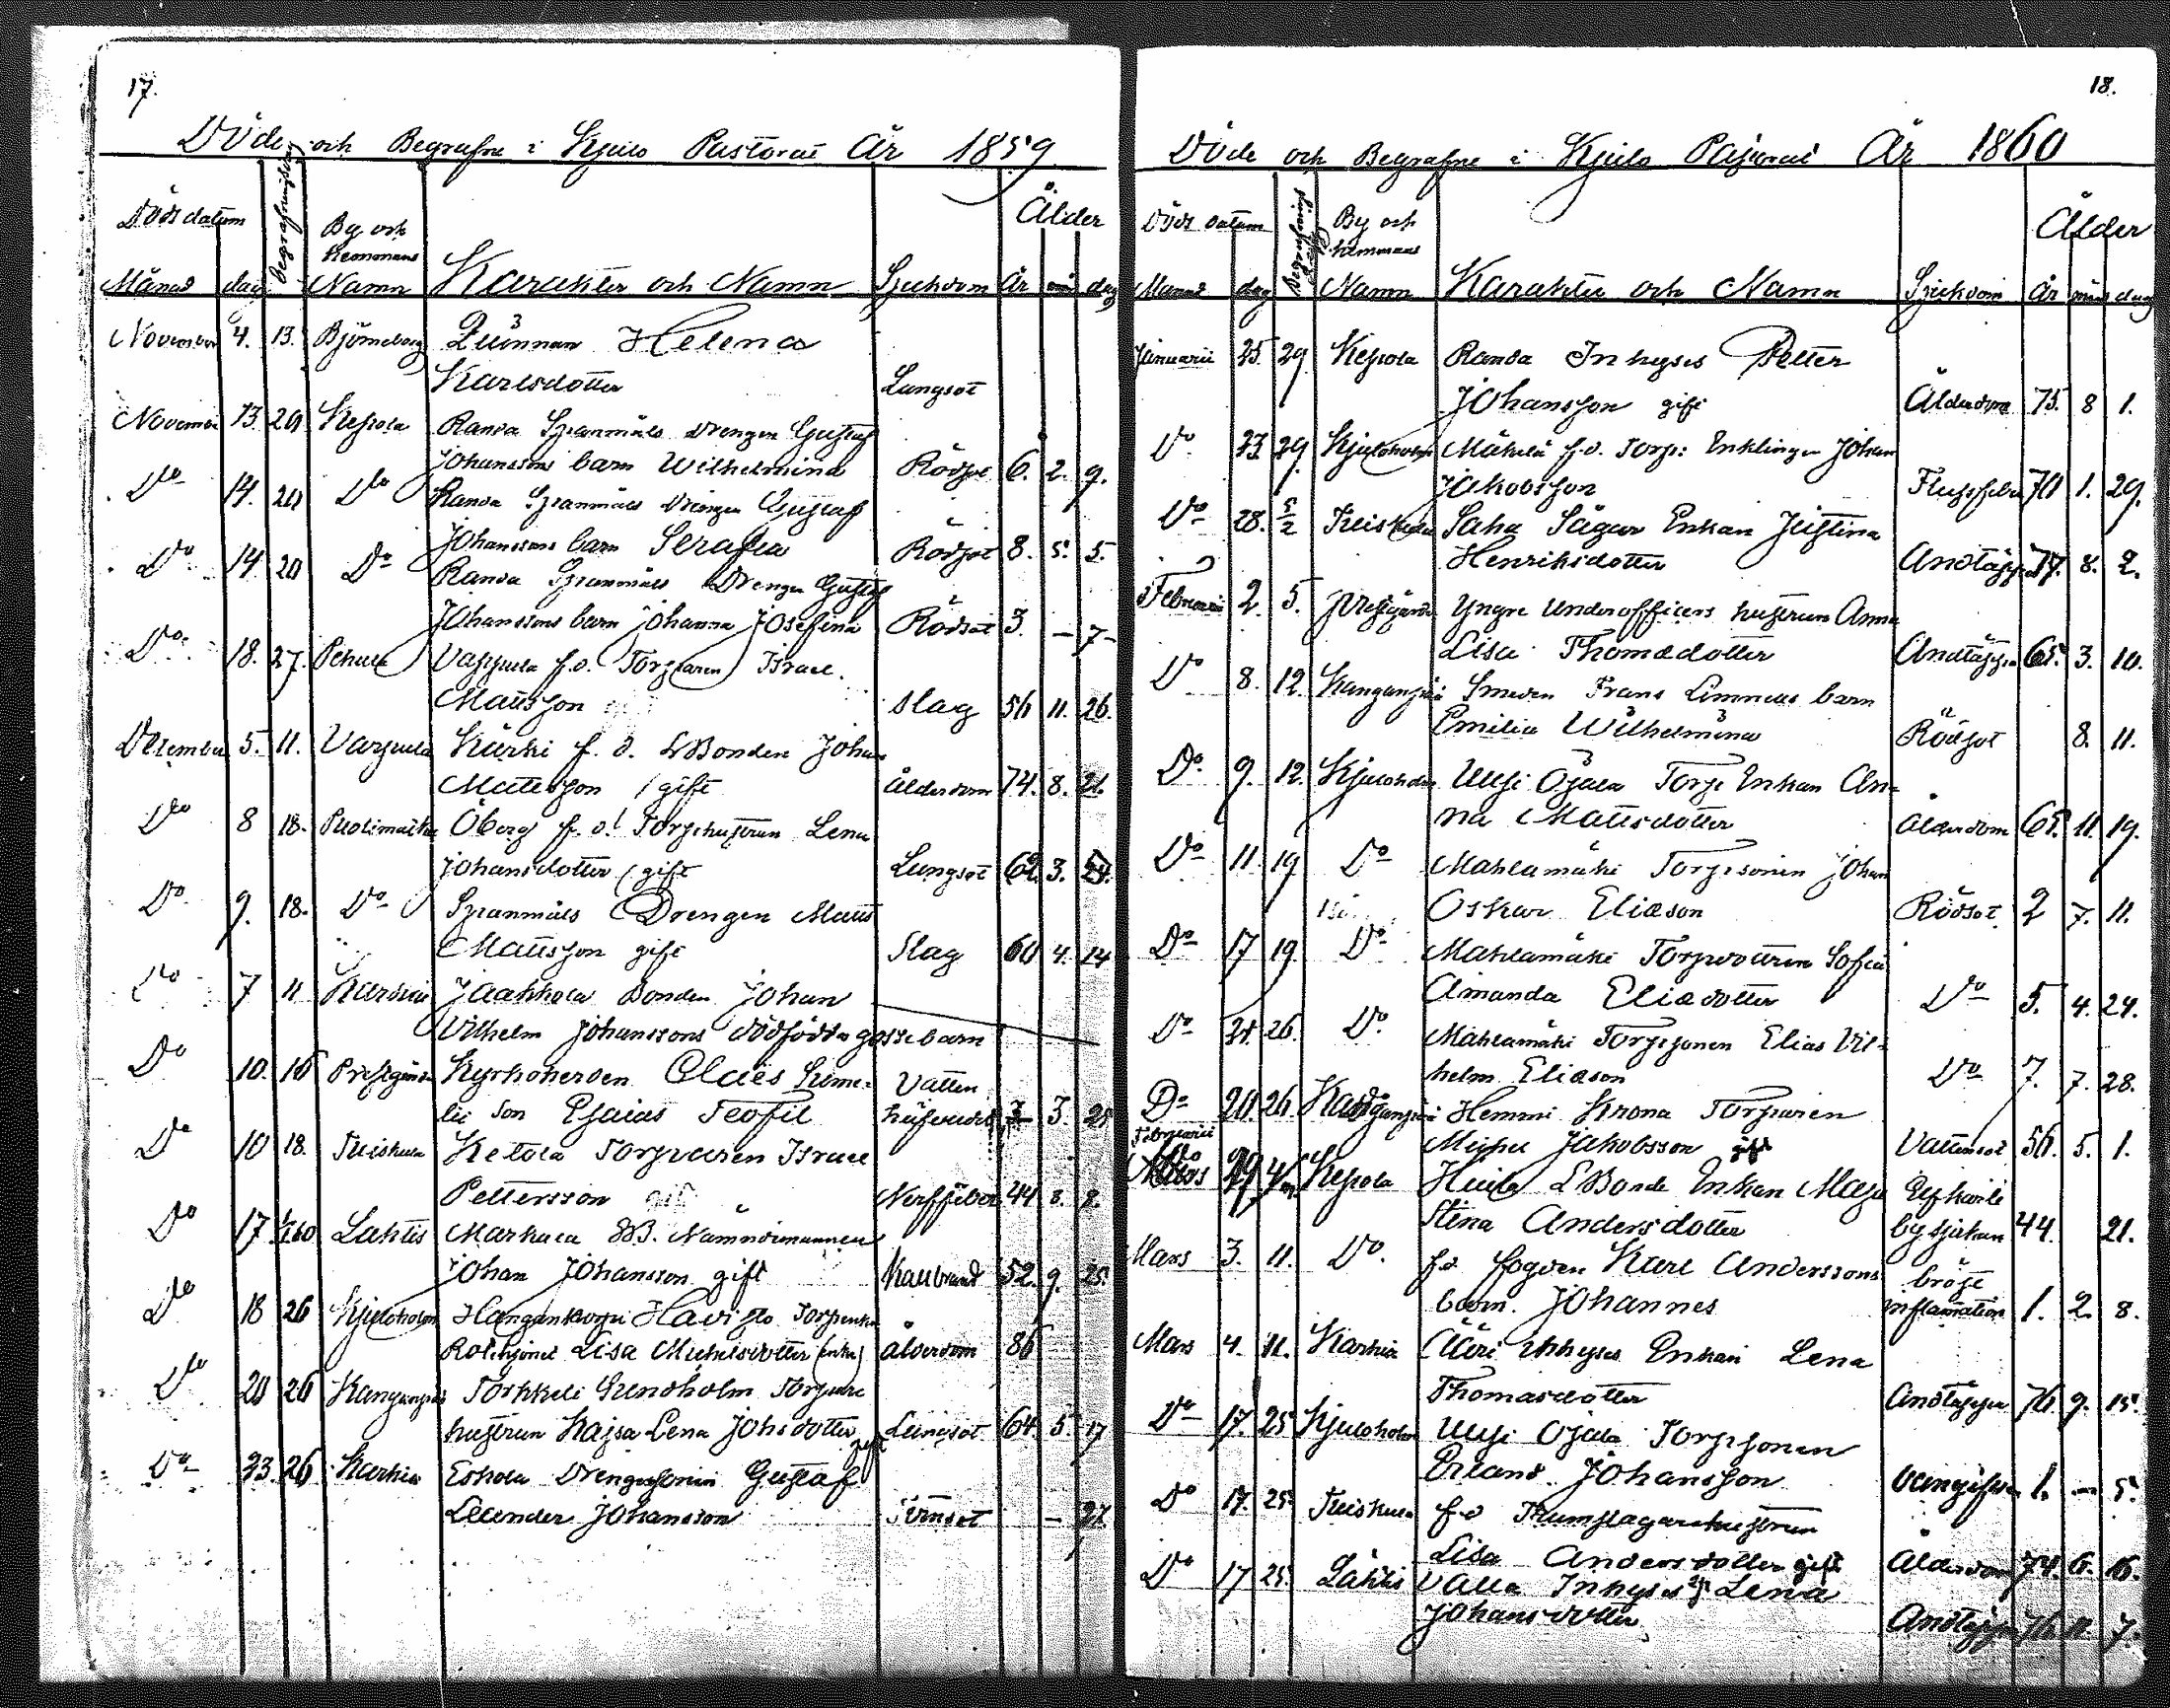 17.
Döde och Begrafne i Kjulo Pastorat År 1859
Döds datum
Begrafningsdag
By och Hemmans
Ålder
Månad dag Namn Karakter och Namn Sjukdom År mån dag
November 4. 13. Björneborg Qvinnan Helena
Karlsdotter Lungsot
November 13. 20 Kepola Randa Spanmåls Drengen Gustaf
Johanssons barn Wilhelmina Rödsot 6. 2. 9.
Do 14. 20 Do Randa Spanmåls Drengen Gustaf
Johanssons barn Serafia Rödsot 8. 5. 5.
Do 14 20 Do Randa Spanmåls Drengen Gustaf
Johanssons barn Johanna Josefina Rödsot 3 — 7
Do 18. 27. f.d. Torparen Israel
Mattsson Slag 56 11. 26.
December 5. 11. f.d. Bonden Johan
Mattsson gift Ålderdom 74. 8. 21.
Do 8 18. Öberg f.d. Torphustrun Lena
Johansdotter gift Lungsot 62. 3. 24.
Do 9. 18. Do Spanmåls Drengen Matts
Mattsson gift Slag 60 4. 14
Do 7 11 Karhia Jaakkola Bonden Johan
Vilhelm Johanssons dödfödda gossebarn
Do 10. 16 Prestgården Kyrkoherden Claës
son Esaias Teofil Vatten 3. 25
Do 10 18. Ketola Torparen Israel
Pettersson Nerffeber 44 8. 8.
Do 17 1/1 60 Lahtis Markula Nämndemannen
Johan Johansson gift Kallbrand 52. 9. 25.
Do 18 26 Kjuloholm
Lisa Michelsdotter (enka) Ålderdom 86
Do 20 26 Sundholm Torpare
hustrun Kajsa Lena Johsdotter gift Lungsot 64. 5. 17
Do 23. 26 Karhia Eskola Drengsonen Gustaf
Leander Johansson — 27.
18.
Döde och Begrafne i Kjulo Pastorat År 1860
Döds datum
Begrafnings dag
By och Hemmans
Ålder
Månad dag Namn Karakter och Namn Sjukdom År mån dag
Januarii 25. 29 Kepola Randa Inhyses Petter
Johansson gift Ålderdom 75. 8 1.
Do 23 29. Kjuloholm Mäkelä f.d. Torp: Enklingen Johan
Jakobsson 70 1. 29.
Do 28. 5/2 Saha Enkan Justina
Henriksdotter Andtäppa 77. 8. 2.
Februari 2. 5. Prestgården Yngre Underofficers hustrun Anna
Lisa Thomasdotter Andtäppa 65. 3. 10.
Do 8. 12. Smeden Frans barn
Emilia Wilhelmina Rödsot 8. 11.
Do 9. 12. Kjuloholm Uusi Ojala Torp Enkan An-
na Mattsdotter Ålderdom 65. 11. 19.
Do 11. 19 Do Mahlamäki Torpsonen Johan
Oskar Eliasson Rödsot 2 7. 11.
Do 17 19. Do Mahlamäki Torpdottren Sofia
Amanda Eliædotter Do 5. 4. 24.
Do 21. 26. Do Mahlamäki Torpsonen Elias Vil-
helm Eliæson Do 7. 7. 28.
Do 20. 26. Hemmi Krona Torparen
Michel Jakobsson gift Vattensot 56. 5. 1.
Februarii
Do 29 Kepola Huila Bonde Enkan Maja
Stina Andersdotter 44. 21.
Mars 3. 11. Do f.d. fogden Karl Anderssons bröst
barn Johannes inflamation 1. 2. 8.
Mars 4. 11. Karhia Inhyses Enkan Lena
Thomasdotter Andtäppa 76. 9. 15.
Do 17. 25 Kjuloholm Uusi Ojala Torpsonen
Erland Johansson 1. — 5.
Do 17. 25. f.d. Trumslagarehustrun
Lisa Andersdotter gift Ålderdom 74. 6. 16.
Do 17 25. Lahtis Inhyses Lena
Johansdotter Andtäppa 76. 11. 7.